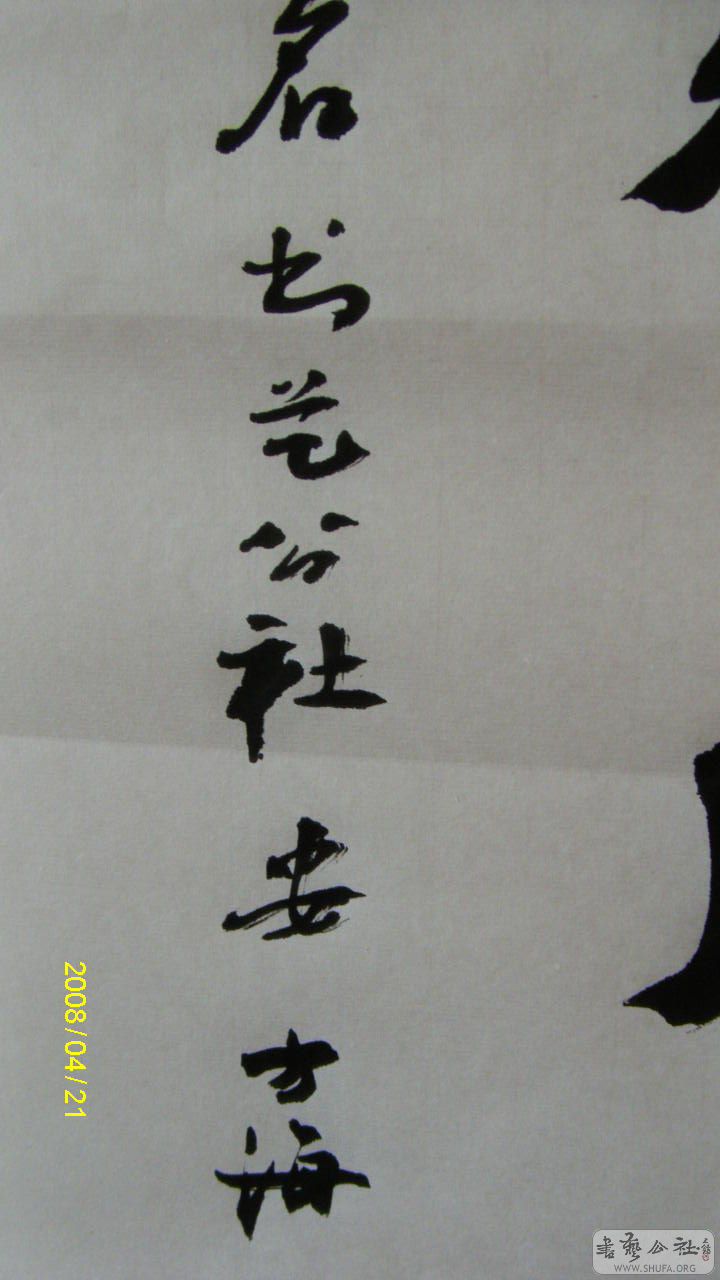 名书艺公社娄方海
2008/04/21
書藝公社
WWW.SHUFA.ORG